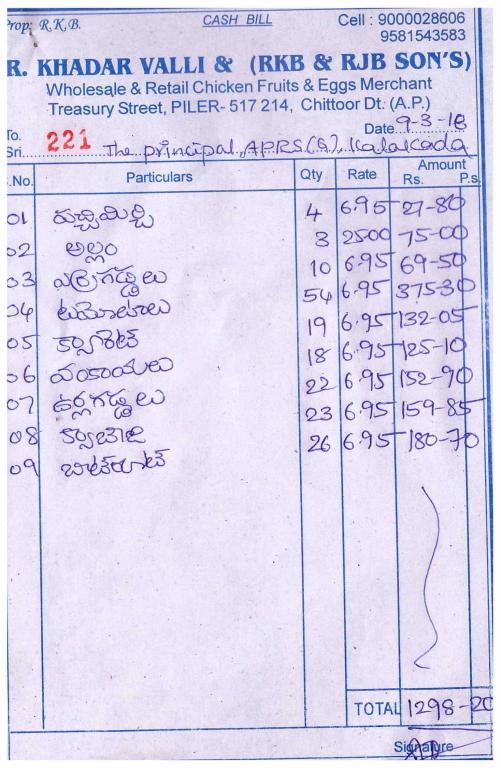 Prop: R.K.B. CASH BILL Cell : 9000028606
9581543583
R. KHADAR VALLI & (RKB & RJB SON'S)
Wholesale & Retail Chicken Fruits & Eggs Merchant
Treasury Street, PILER- 517 214, Chittoor Dt. (A.P.)
To. Date 9-3-18
Sri. 221 The principal, APRS(G), Kalakada
.No. Particulars Qty Rate Amount
Rs. P.s.
01 పచ్చిమిర్చి 4 6.95 27-80
02 అల్లం 3 2500 75-00
03 ఎర్రగడ్డలు 10 6.95 69-50
04 టమోటాలు 54 6.95 375-30
05 క్యారెట్ 19 6.95 132-05
06 వంకాయలు 18 6.95 125-10
07 ఉర్లగడ్డలు 22 6.95 152-90
08 క్యాబేజి 23 6.95 159-85
09 బీట్‌రూట్ 26 6.95 180-70
TOTAL 1298-20
Signature